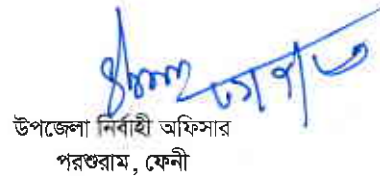 উপজেলা নির্বাহী অফিসার
পরশুরাম, ফেনী